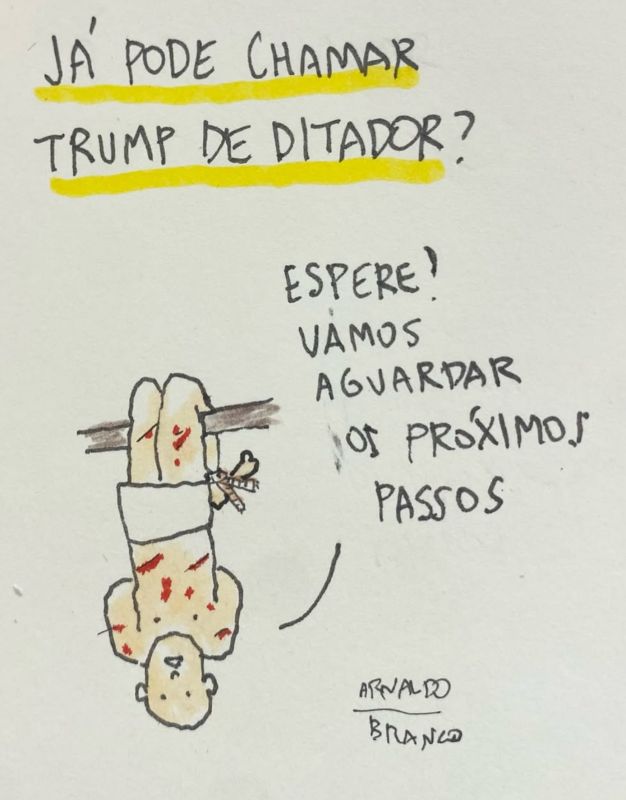 JÁ PODE CHAMAR
TRUMP DE DITADOR?
ESPERE!
VAMOS
AGUARDAR
OS PRÓXIMOS
PASSOS
ARNALDO
BRANCO